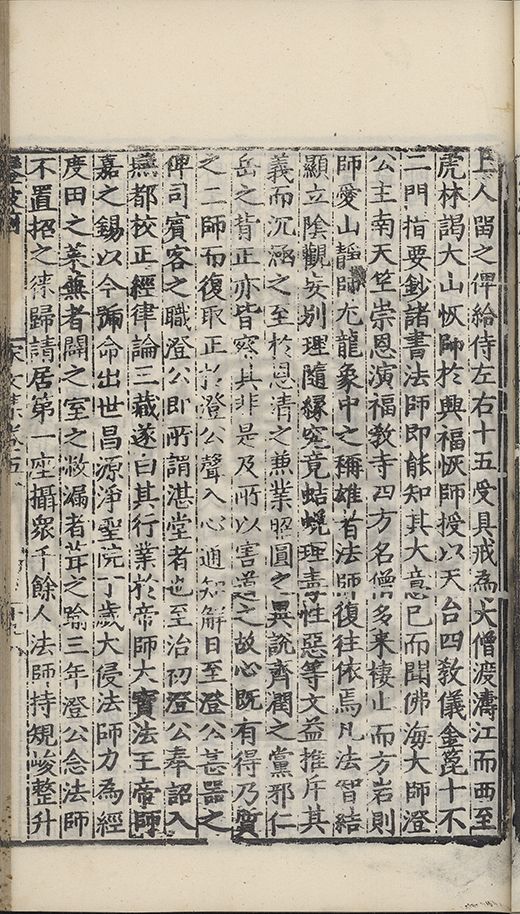 上人留之俾給侍左右十五受具戒為大僧渡濤江而西至
虎林謁大山恢師於興福恢師授以天台四教儀金錍十不
二門指要鈔諸書法師即能知其大意已而聞佛海大師澄
公主南天竺崇恩演福教寺四方名僧多來棲止而方岩則
師愛山靜師尤龍象中之稱雄者法師復往依焉凡法智結
顯立陰觀妄別理隨緣究竟蛣蜣理毒性惡等文益推斥其
義而沉涵之至於恩清之兼業昭圓之異說齊潤之黨邪仁
岳之背正亦皆察其非是及所以害道之故心既有得乃質
之二師而復取正於澄公聲入心通知解日至澄公甚器之
俾司賓客之職澄公即所謂湛堂者也至治初澄公奉詔入
燕都校正經律論三藏遂白其行業於帝師大寶法王帝師
嘉之錫以今號命出世昌源淨聖院丁歲大侵法師力為經
度田之萊蕪者闢之室之敝漏者葺之踰三年澄公念法師
不置招之徠歸請居第一座攝眾千餘人法師持規峻整升